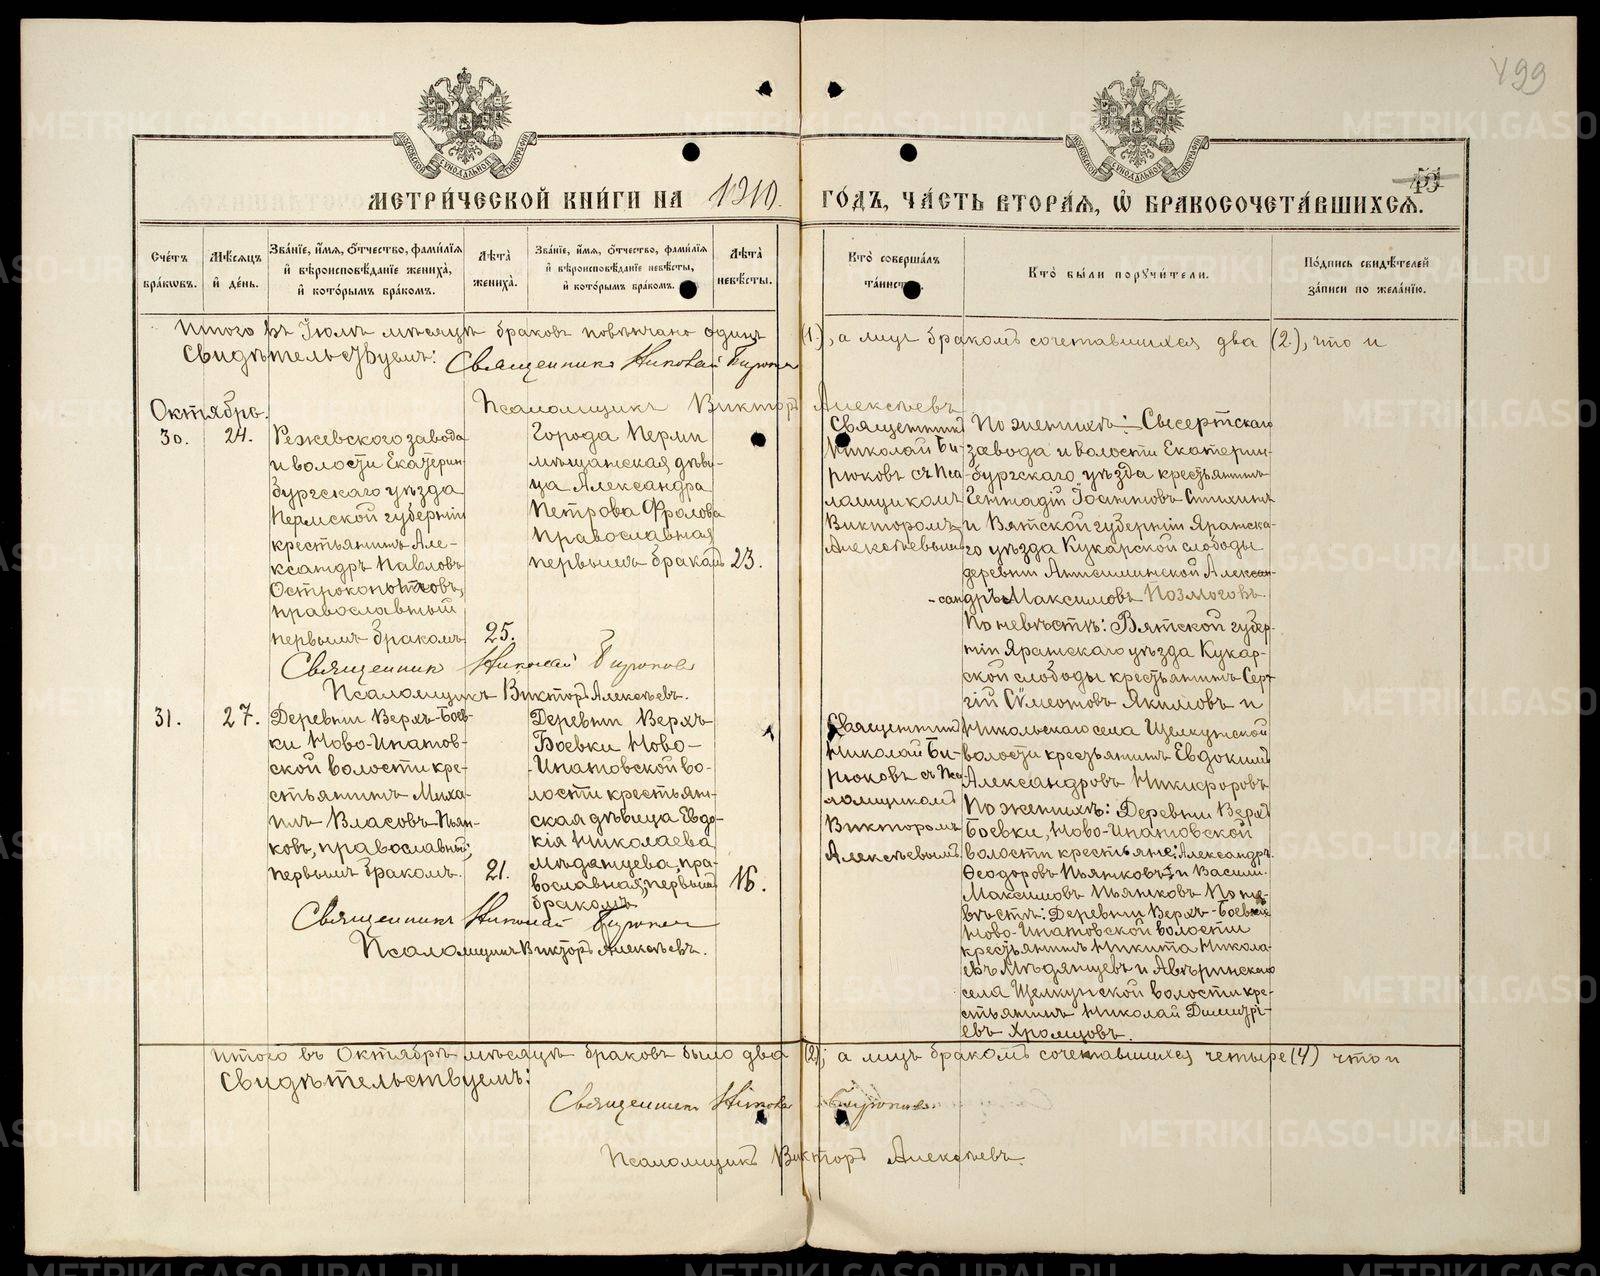 499
МЕТРИ́ЧЕСКОЙ КНИ́ГИ НА 1910. ГО́ДЪ, ЧА́СТЬ ВТОРА́Я, Ѡ БРАКОСОЧЕТА́ВШИХСЯ.
Сче́тъ бра́кѡвъ.
Мѣ́сяцъ и҆ де́нь.
Зва́нїе, и҆́мя, ѻ҆́тчество, фами́лїя и҆ вѣроисповѣ́данїе жениха̀, и҆ кото́рымъ бра́комъ.
Лѣ́та жениха̀.
Зва́нїе, и҆́мя, ѻ҆́тчество, фами́лїя и҆ вѣроисповѣ́данїе невѣ́сты, и҆ кото́рымъ бра́комъ.
Лѣ́та невѣ́сты.
Кто̀ соверша́лъ та́инст
Кто̀ бы́ли поручи́тели.
По́дпись свидѣ́телей за́писи по жела́нїю.
Итого въ Іюлѣ мѣсяцѣ браковъ повѣнчано одинъ (1), а лицъ бракомъ сочетавшихся два (2), что и
Свидѣтельствуемъ: Священникъ Николай Бирюков
Псаломщикъ Викторъ Алексѣевъ
Октябрь.
30.
24.
Режевского завода
и волости Екатерин-
бургскаго уѣзда
Пермской губерніи
крестьянинъ Але-
ксандръ Павловъ
Острокопытовъ,
православный
первымъ бракомъ
25.
Города Перми
мѣщанская дѣви-
ца Александра
Петрова Фролова
православная
первымъ бракомъ
23.
Священникъ
Николай Би-
рюковъ съ Пса-
ломщикомъ
Викторомъ
Алексѣевымъ
По женихѣ: Сысертскаго
завода и волости Екатерин-
бургскаго уѣзда крестьянинъ
Геннадій Іоанновъ Стихинъ
и Вятской губерніи Яранска-
го уѣзда Кукарской слободы
деревни Анисиминской Алексан-
-сандръ Максимовъ Позмоговъ.
По невѣстѣ: Вятской губер-
ніи Яранскаго уѣзда Кукар-
ской слободы крестьянинъ Сер-
гій Сѵмеоновъ Якимовъ и
Никольскаго села Щелкунской
волости крестьянинъ Евдокимъ
Александровъ Никифоровъ
Священник Николай Бирюковъ
Псаломщикъ Викторъ Алексѣевъ.
31.
27.
Деревни Верхъ-Боев-
ки Ново-Ипатов-
ской волости кре-
стьянинъ Миха-
илъ Власовъ Пьян-
ковъ, православный,
первымъ бракомъ.
21.
Деревни Верхъ
Боевки Ново-
-Ипатовской во-
лости крестьян-
ская дѣвица Евдо-
кія Николаева
Мѣдянцева, пра-
вославная, первымъ
бракомъ
16.
Священникъ
Николай Би-
рюковъ съ Пса-
ломщикомъ
Викторомъ
Алексѣевымъ.
По женихѣ: Деревни Верхъ
Боевки, Ново-Ипатовской
волости крестьяне: Александръ
Ѳеодоровъ Пьянковъ и Васили.
Максимовъ Пьянковъ По не-
вѣстѣ: Деревни Верхъ-Боевки
Ново-Ипатовской волости
крестьянинъ Никита Никола-
евъ Мѣдянцевъ и Авѣринскаго
села Щелкунской волости кре-
стьянинъ Николай Димитрі-
евъ Хромцовъ.
Священникъ Николай Бирюков
Псаломщикъ Викторъ Алексѣевъ.
Итого въ Октябрѣ мѣсяцѣ браковъ было два (2), а лицъ бракомъ сочетавшихся четыре (4) что и
Свидѣтельствуемъ:
Священникъ Николай Бирюковъ.
Псаломщикъ Викторъ Алексѣевъ.
METRIKI.GASO-URAL.RU